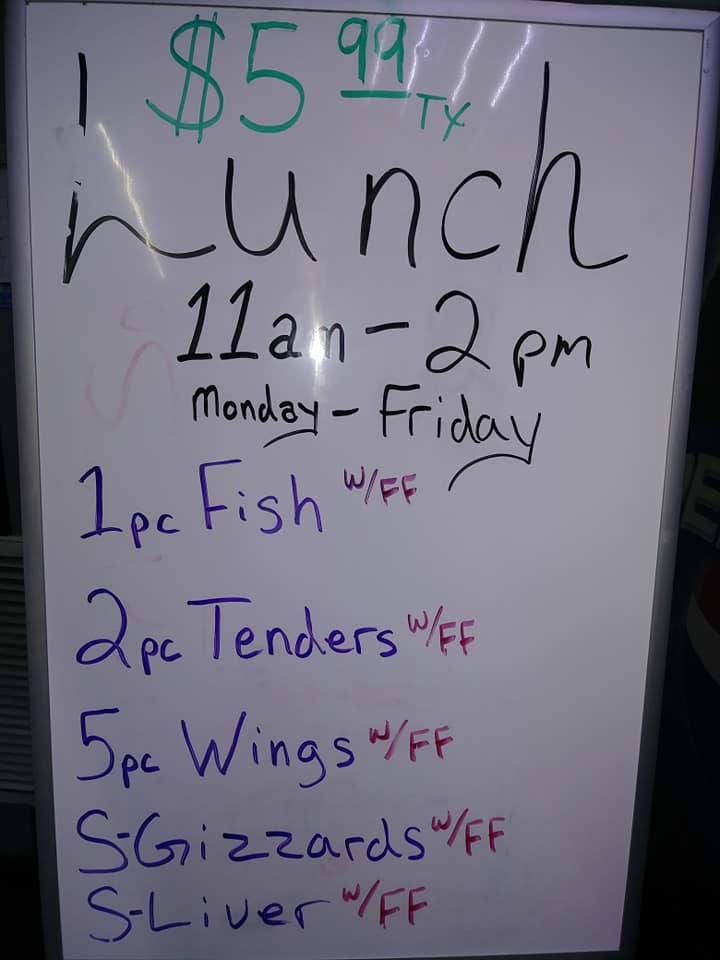 $5 99 TX
Lunch
11am-2pm
Monday-Friday
1pc Fish W/FF
2pc Tenders W/FF
5pc Wings W/FF
S-Gizzards W/FF
S-Liver W/FF